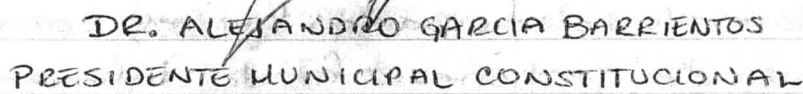 DR. ALEJANDRO GARCIA BARRIENTOS
PRESIDENTE MUNICIPAL CONSTITUCIONAL